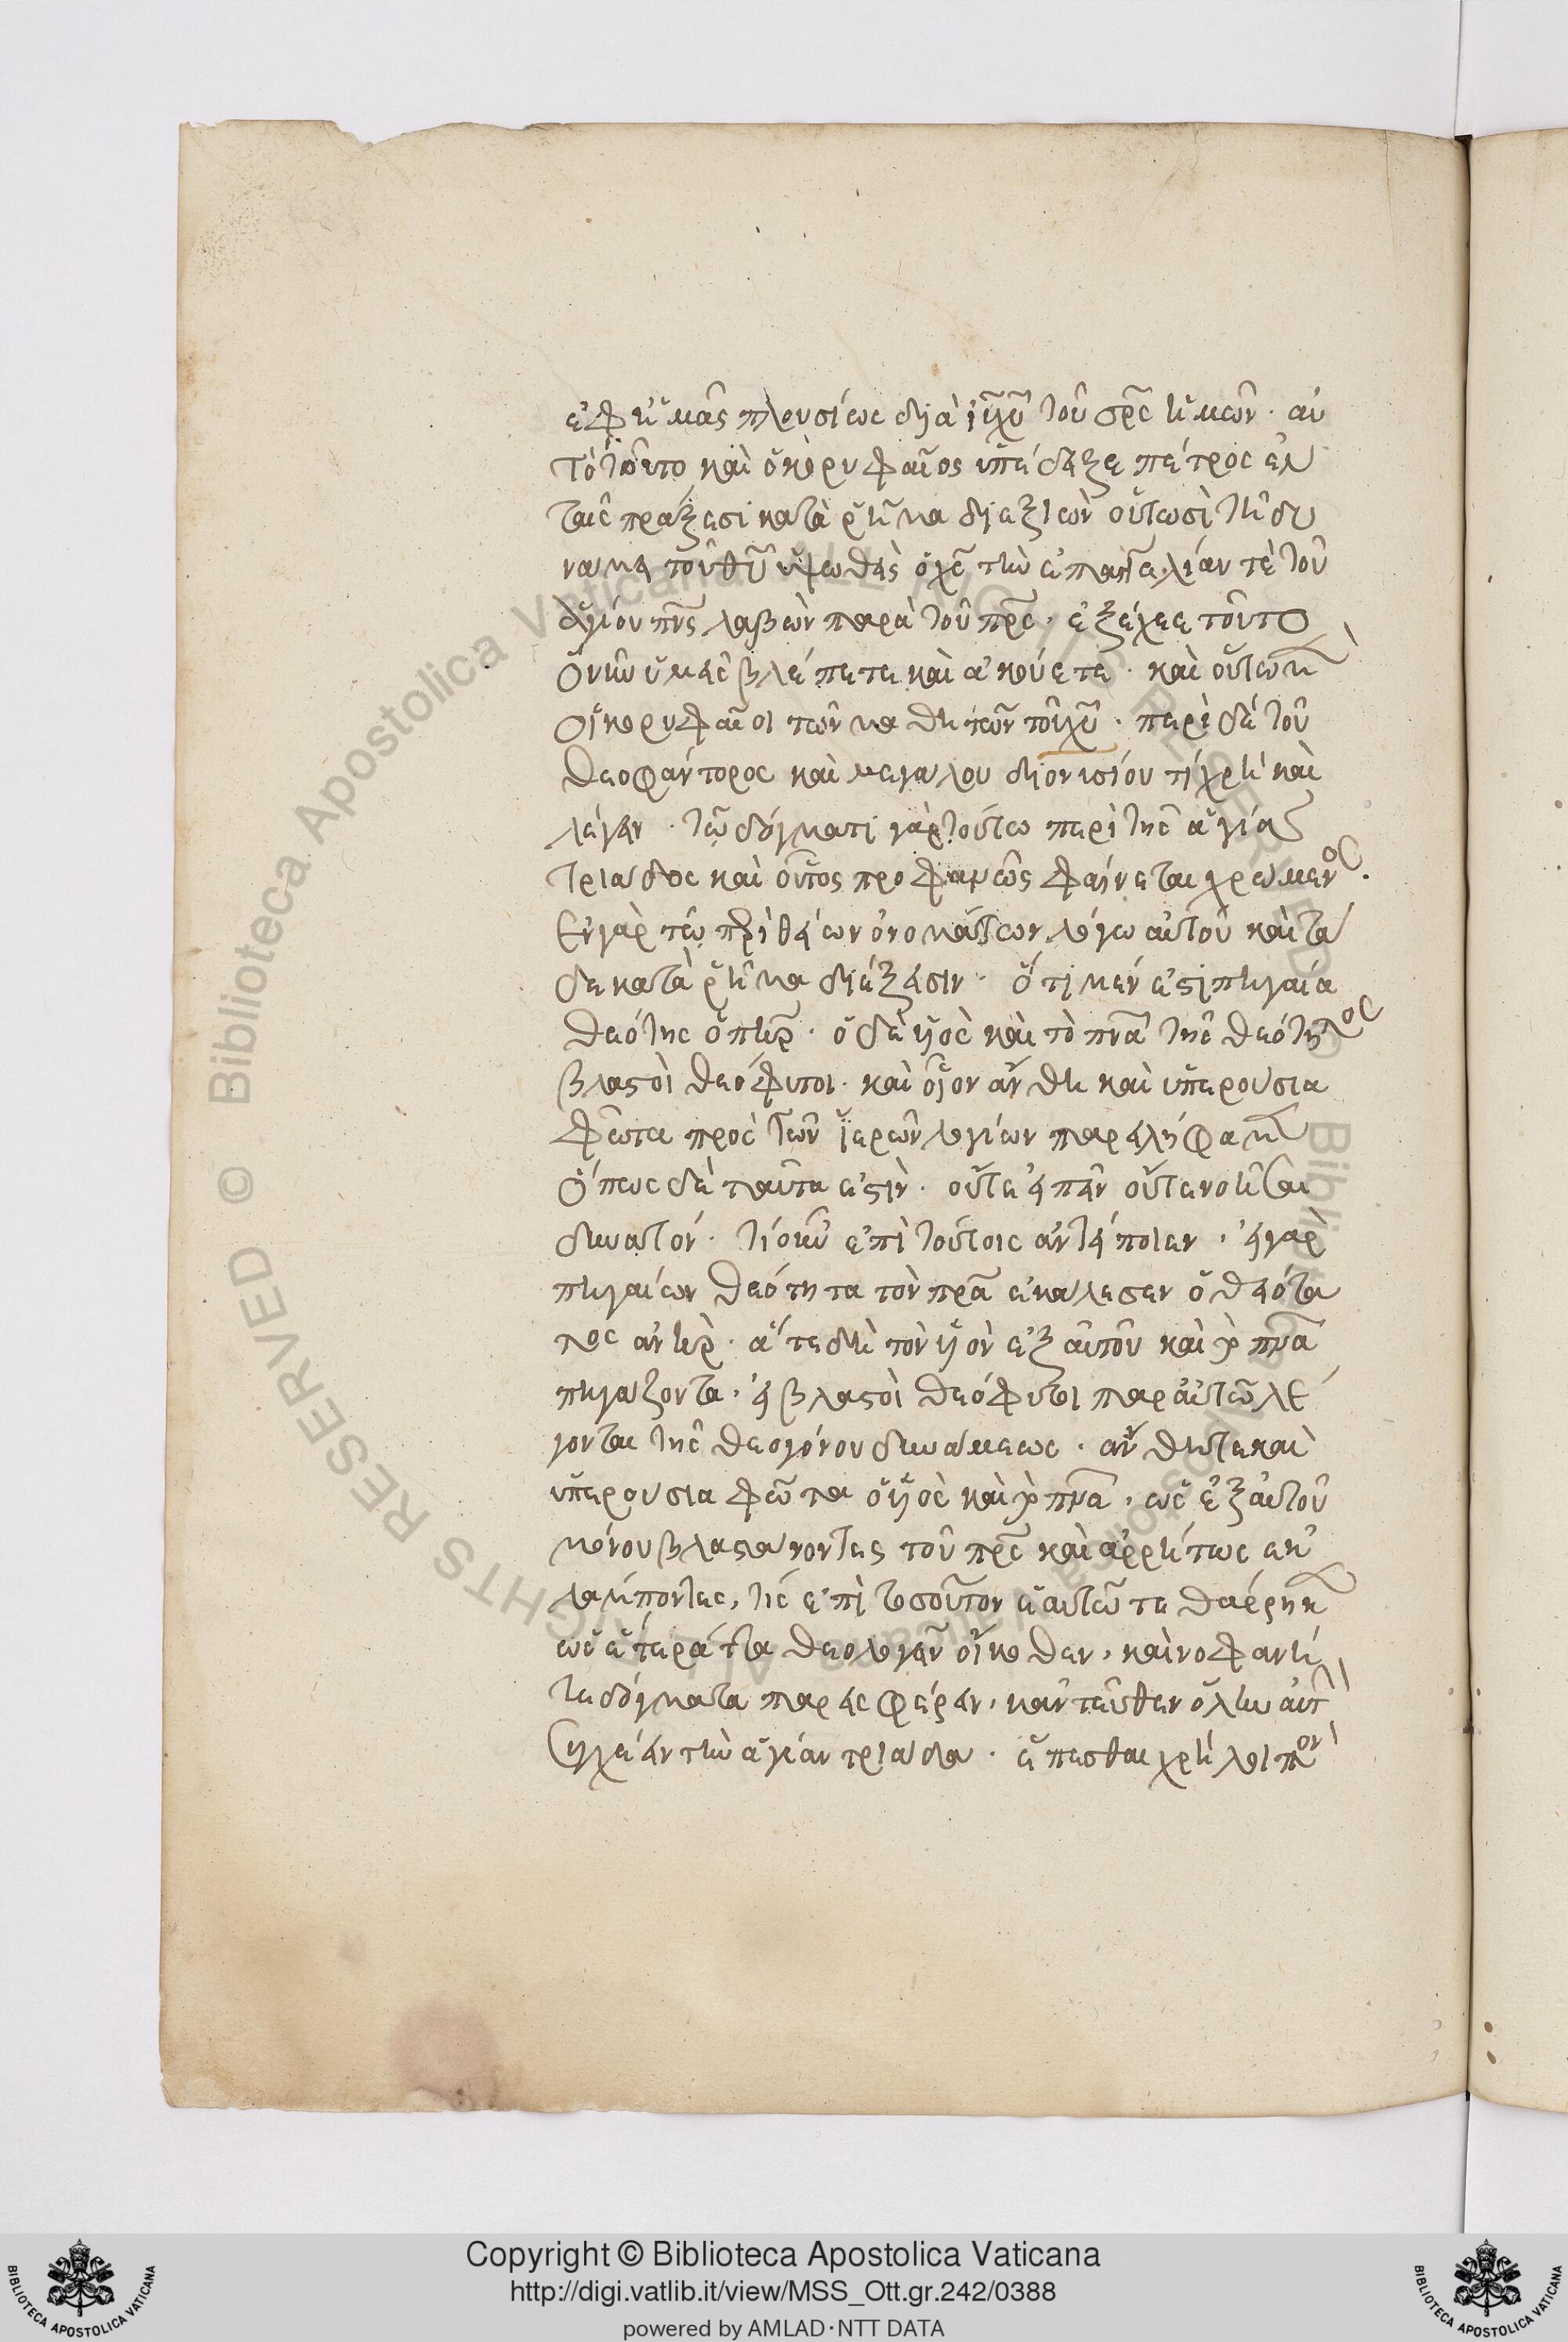 ἐφ ἡμᾶς πλουσίως διὰ ἰῦ χῦ τοῦ σρ̅ς ἡμῶν· αὐ
τὸ τοῦτο καὶ ὁ κορυφαῖος ὑπέδειξε πέτρος ἐν
ταῖς πράξεσι κατὰ ῥῆμα διεξιὼν οὑτωσὶ τῇ δυ
νάμει τοῦ θῦ ὑψωθεὶς ὁ χς τὴν ἐπαγγελίαν τὲ τοῦ
ἁγίου πνς λαβὼν παρὰ τοῦ πρς· ἐξέχεε τοῦτο
ὃ νῦν ὑμεῖς βλέπετε καὶ ἀκούετε· καὶ οὕτω μ
οἱ κορυφαῖοι τῶν μαθητῶν τοῦ χῦ· περὶ δὲ τοῦ
θεοφάντορος καὶ μεγάλου διονισίου τί χρὴ καὶ
λέγειν· τῷ δόγματι γὰρ τούτω περὶ τῆς ἁγίας
τριάδος καὶ οὗτος προφανῶς φαίνεται χρώμενος.
Ἐν γὰρ τῷ περὶ θείων ὀνομάτων λόγω αὐτοῦ καὶ τά
δε κατὰ ῥῆμα διέξεισιν· ὅτι μέν ἐστι πηγαία
θεότης ὁ πηρ· ὁ δὲ υἱὸς καὶ τὸ πνα τῆς θεότητος
βλαστοὶ θεόφυτοι· καὶ οἷον ἄνθη καὶ ὑπερούσια
φῶτα πρὸς τῶν ἱερῶν λογίων παρειλήφαμεν
ὅπως δὲ ταῦτα ἐστὶν· οὔτε εἰπεῖν οὔτε νοῆσαι
δυνατόν· τί οὖν ἐπὶ τούτοις ἀντείποιεν, εἰ γὰρ
πηγαίων θεότητα τὸν πρα ἐκάλεσεν ὁ θειότα
τος ἀνὴρ· ἅτε δὴ τὸν υἱὸν ἐξ αὐτοῦ καὶ τὸ πνα
πηγάζοντα, εἰ βλαστοὶ θεόφυτοι παρ αὐτῶ λέ
γονται τῆς θεογόνου δυνάμεως· ἄνθη τε καὶ
ὑπερούσια φῶτα ὁ υἱὸς καὶ τὸ πνα, ὡς ἐξ αὐτοῦ
μόνου βλαστάνοντες τοῦ πρς καὶ ἀρρήτως ἐκ
λάμποντες, τίς ἐπὶ τοσοῦτον ἑαυτῶ τεθάρρηκ
ὡς ἕτερά τινα θεολογεῖν οἴκοθεν, καινοφανῆ
τε δόγματα παρεισφέρειν, κἀντεῦθεν ὅλην αὐτ
συγχέειν τὴν ἁγίαν τριάδα· ἕπεσθαι χρὴ λοιπὸν